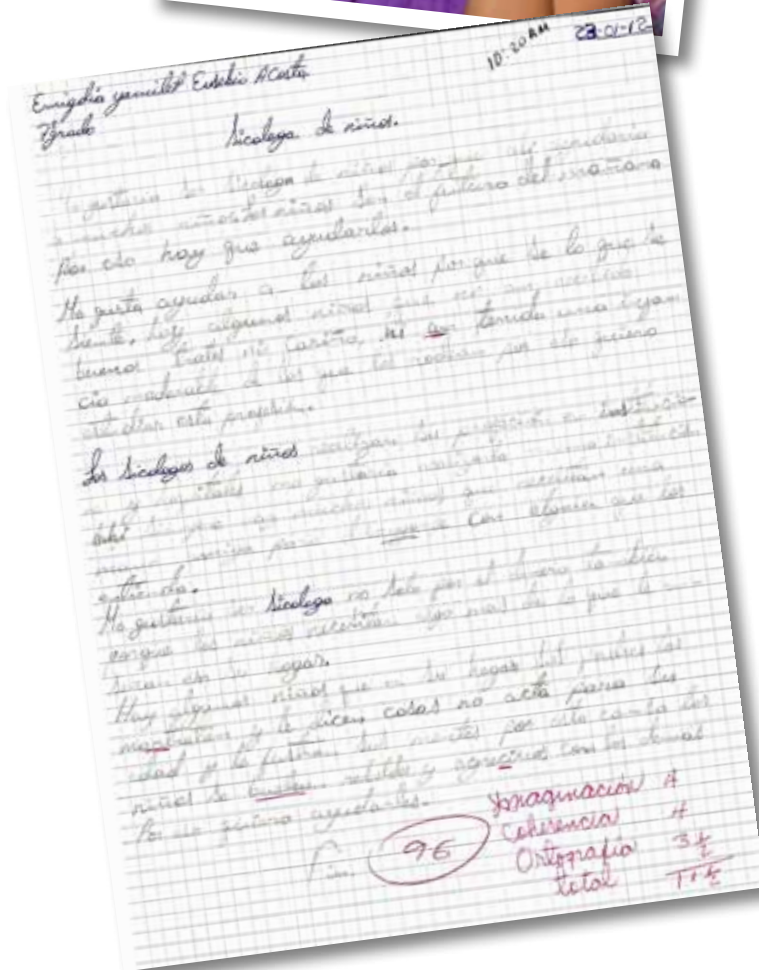 10:20 AM 23-01-12
Emigdia yamilet Eusebio Acosta
7grado
Sicologa de niños.
Me gustaria ser Sicologa de niños por que asi ayudaria
a muchos niños los niños son el futuro del mañana
Por eso hay que ayudarlos.
Me gusta ayudar a los niños por que se lo que se
siente, hay algunos niños que no an recibido
buenos tratos ni cariño, ni an tenido una
cia de los que los rodean por eso quiero
estudiar esta profesión.
Los Sicologos de niños realizan su profesión en
y me gustaria realizarla
ahi muchos niños que necesitan una
para con alguien que los
entienda.
Me gustaria ser Sicologa no solo por el dinero
porque los niños necesitan algo mas de lo que le
en su hogar.
Hay algunos niños que en su hogar sus padres los
maltratan y le dicen cosas no acta para su
edad y le sus mentes por esta causa los
niños se rebelde y con los demas
Por eso quiero ayudarlos.
Fin. 96
Ymaginación 4
Coherencia 4
Ortografía 3 1/2
total 11 1/2